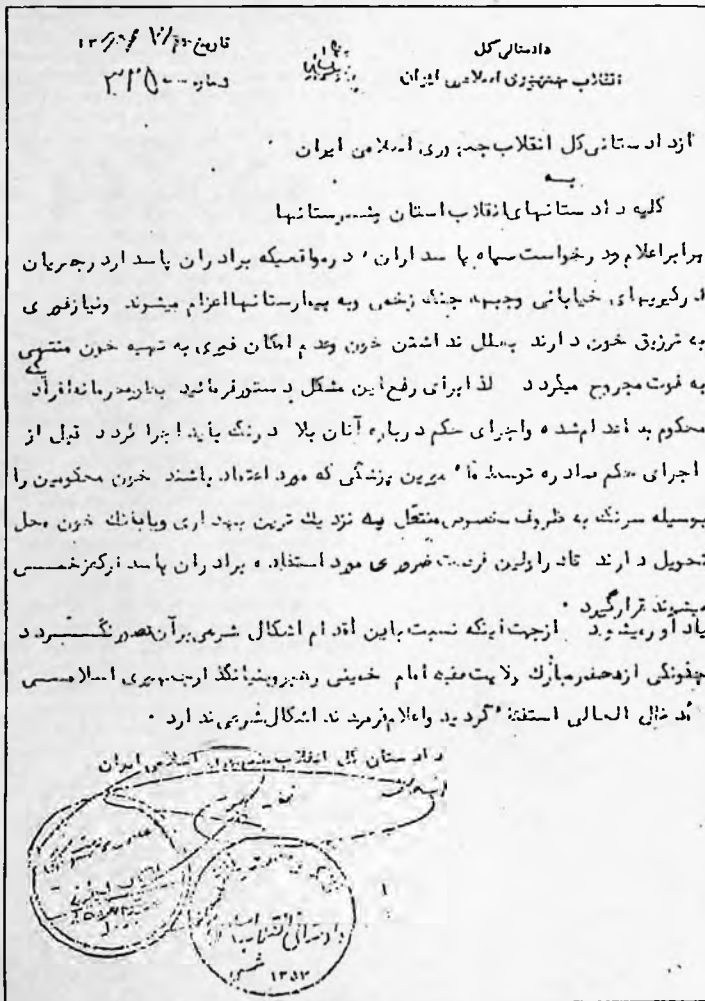 دادستانی کل
انقلاب جمهوری اسلامی ایران
تاریخ
شماره ۳۲۵۰۰
از دادستانی کل انقلاب جمهوری اسلامی ایران
به
کلیه دادستانهای انقلاب استان وشهرستانها
برابراعلام ودرخواست سپاه پاسداران ، درمواقعیکه برادران پاسداردرجریان
درگیریهای خیابانی وجبهه جنگ زخمی وبه بیمارستانهااعزام میشوند ونیازفوری
به تزریق خون دارند بعلل نداشتن خون وعدم امکان فوری به تهیه خون منتهی
به فوت مجروح میگردد لذا برای رفع این مشکل دستورفرمائید بطورمحرمانه افرادیکه
محکوم به اعدام شده واجرای حکم درباره آنان بلا درنگ باید اجرا گردد قبل از
اجرای حکم صادره توسط مأمورین پزشکی که مورد اعتماد باشند خون محکومین را
بوسیله سرنگ به ظروف مخصوص منتقل وبه نزدیک ترین بهداری ویابانک خون محل
تحویل دارند تادراولین فرصت ضروری مورد استفاده برادران پاسدارکه زخمی
میشوند قرارگیرد .
یادآورمیشود ازجهت اینکه نسبت باین اقدام اشکال شرعی برآن تصورنگردد
چگونگی ازمحضرمبارک ولایت فقیه امام خمینی رهبروبنیانگذارجمهوری اسلامی
مد ظله العالی استفتاء گردید واعلام فرمودند اشکال شرعی ندارد .
دادستان کل انقلاب جمهوری اسلامی ایران
دادستانی انقلاب